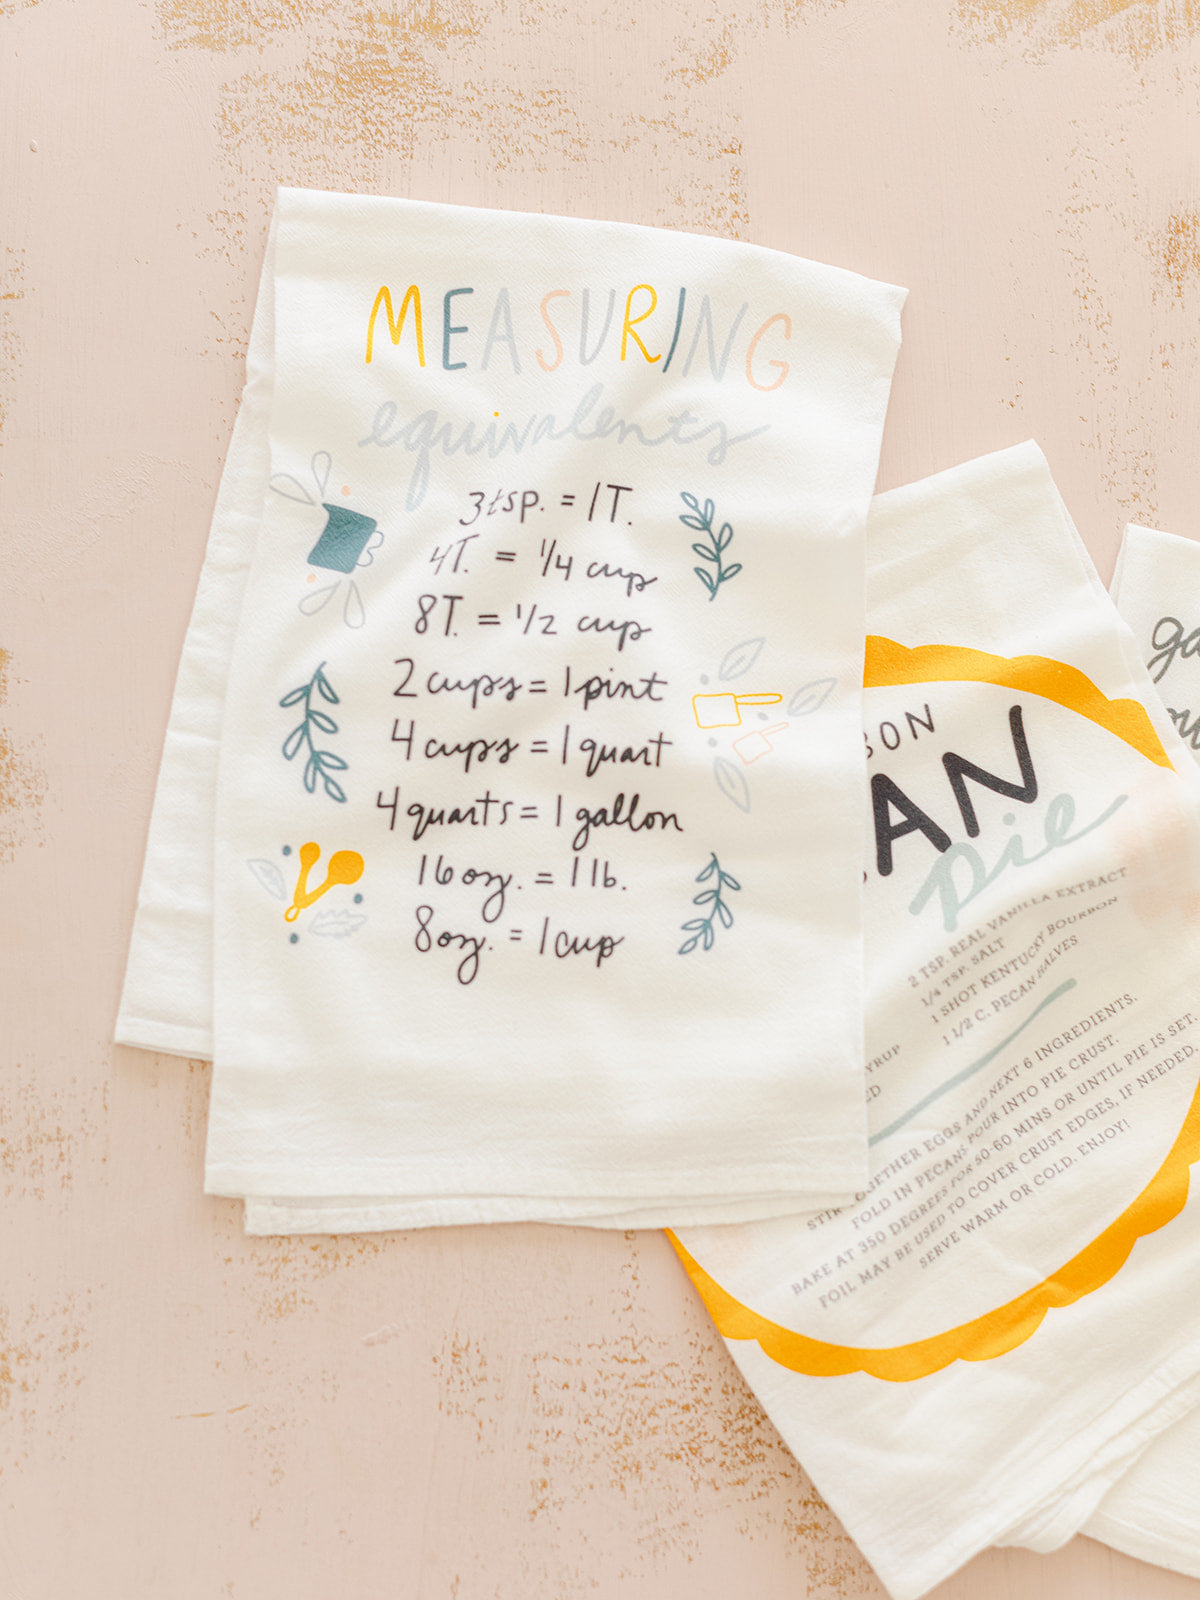 MEASURING
equivalents
3tsp. = 1T.
4T. = 1/4 cup
8T. = 1/2 cup
2 cups = 1 pint
4 cups = 1 quart
4 quarts = 1 gallon
16 oz. = 1 lb.
8 oz. = 1 cup
BON
AN
pie
2 TSP. REAL VANILLA EXTRACT
1/4 TSP. SALT
1 SHOT KENTUCKY BOURBON
1 1/2 C. PECAN HALVES
YRUP
ED
STIR TOGETHER EGGS AND NEXT 6 INGREDIENTS.
FOLD IN PECANS POUR INTO PIE CRUST.
BAKE AT 350 DEGREES FOR 50-60 MINS OR UNTIL PIE IS SET.
FOIL MAY BE USED TO COVER CRUST EDGES, IF NEEDED.
SERVE WARM OR COLD. ENJOY!
ga